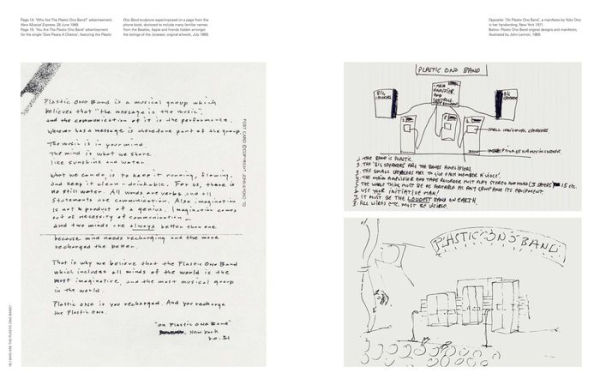 Page 14: "Who Are The Plastic Ono Band?" advertisement,
New Musical Express, 28 June 1969.
Page 15: "You Are The Plastic Ono Band" advertisement
for the single 'Give Peace A Chance', featuring the Plastic
Ono Band sculpture superimposed on a page from the
phone book, doctored to include many familiar names
from the Beatles, Apple and friends hidden amongst
the listings of the Joneses; original artwork, July 1969.
Opposite: 'On Plastic Ono Band', a manifesto by Yoko Ono
in her handwriting, New York 1971.
Below: Plastic Ono Band original designs and manifesto,
illustrated by John Lennon, 1969.
Plastic Ono Band is a musical group which
believes that "the message is the music",
and the communication of it is the performance.
Whoever has a message is therefore part of the group.
The music is in your mind.
The mind is what we share
like sunshine and water.
What we can do is to keep it running, flowing,
and keep it clean - drinkable. For us, there is
no still water. All words are verbs and all
statements are communication. Also imagination
is not a product of a genius. Imagination comes
out of necessity of communication
and two minds are always better than one
because mind needs recharging and the more
recharged the better.
That is why we believe that the Plastic Ono Band
which includes all minds of the world is the
most imaginative, and the most musical group
in the world.
Plastic Ono is you recharged. And you recharge
the Plastic Ono.
"on Plastic Ono Band"
New York
y.o. 71
PLASTIC ONO BAND
BIG
SPEAKERS
BIG
SPEAKERS
SMALL INDIVIDUAL SPEAKERS
1. THE BAND IS PLASTIC.
USE YOUR INITIATIVE MAN!
IT MUST BE THE LOUDEST BAND ON EARTH.
ALL WIRES ETC. MUST BE VISIBLE
PLASTIC ONO BAND